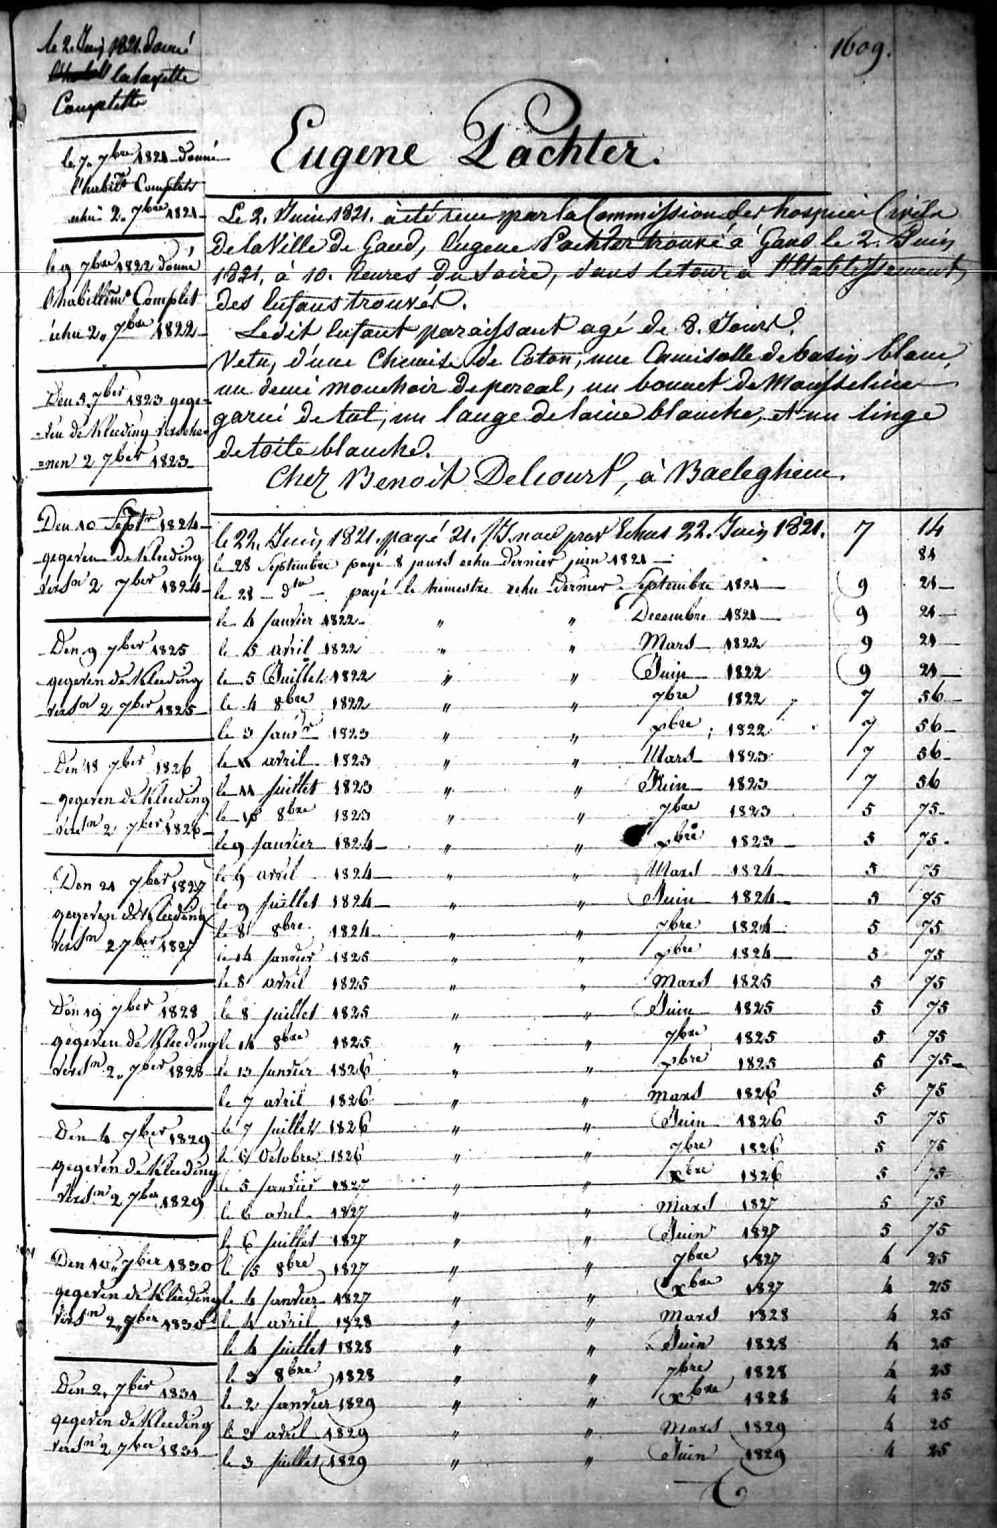 1609.
le 2. Juin 1821. donné
la layette
Complette
le 7. 7bre 1821 donné
l'habilt Complets
echu 2. 7bre 1821
le 9 7bre 1822 donné
l'habillemt Complet
échu 2. 7bre 1822
Den 3. 7ber 1823 gege-
-ven de Kleeding versche-
=nen 2 7ber 1823
Den 10 Septr 1824
gegeven de Kleeding
versn 2 7ber 1824
Den 9 7ber 1825
gegeven de Kleeding
versn 2 7ber 1825
Den 18 7ber 1826
gegeven de Kleeding
versn 2 7ber 1826
Den 21 7ber 1827
gegeven de Kleeding
versn 2 7ber 1827
Den 19 7ber 1828
gegeven de Kleeding
versn 2. 7ber 1828
Den 4 7ber 1829
gegeven de Kleeding
versn 2 7ber 1829
Den 10. 7ber 1830
gegeven de Kleeding
versn 2. 7ber 1830
Den 2. 7ber 1831
gegeven de Kleeding
versn 2 7ber 1831
Eugene Pachter.
Le 2. Juin 1821. a été reçu par la Commission des hospices Civils
De la Ville De Gand, Eugene Pachter trouvé à Gand le 2. Juin
1821, à 10. heures Du soire, dans le tour à l'Etablissement
des Enfans trouvés.
Ledit Enfant paraissant agé de 8. Jours.
Vetu, d'une Chemise de Coton, une Camisolle de basin blanc
un demi mouchoir de percal, un bonnet de Mousseline
garni de tul, un lange de laine blanche, et un linge
de toile blanche.
Chez Benoit Delcourt, à Baeleghem.
le 22. Juin 1821. payé 21. Js. nour prov Echus 22. Juin 1821. 7 14
le 28 Septembre payé 8 jours echu dernier juin 1821 - 84
le 28 - dto - payé le trimestre echu dernier Septembre 1821 9 21
le 4 Janvier 1822 " " Decembre 1821 9 21
le 5 avril 1822 " " Mars 1822 9 21
le 5 Juillet 1822 " " Juin 1822 9 21
le 4 8bre 1822 " " 7bre 1822 7 56
le 3 Janvr 1823 " " xbre 1822 7 56
le avril 1823 " " Mars 1823 7 56
le 11 juillet 1823 " " Juin 1823 7 56
le 8bre 1823 " " 7bre 1823 5 75
le 9 janvier 1824 " " xbre 1823 5 75
le 9 avril 1824 " " Mars 1824 5 75
le 9 juillet 1824 " " Juin 1824 5 75
le 8 8bre 1824 " " 7bre 1824 5 75
le 14 janvier 1825 " " xbre 1824 5 75
le 8 avril 1825 " " Mars 1825 5 75
le 8 juillet 1825 " " Juin 1825 5 75
le 14 8bre 1825 " " 7bre 1825 5 75
le 13 janvier 1826 " " xbre 1825 5 75
le 7 avril 1826 " " mars 1826 5 75
le 7 juillet 1826 " " Juin 1826 5 75
le 6 Octobre 1826 " " 7bre 1826 5 75
le 5 janvier 1827 " " xbre 1826 5 75
le 6 avril 1827 " " Mars 1827 5 75
le 6 juillet 1827 " " Juin 1827 5 75
le 5 8bre 1827 " " 7bre 1827 4 25
le 4 janvier 1827 " " xbre 1827 4 25
le 4 avril 1828 " " Mars 1828 4 25
le 4 juillet 1828 " " Juin 1828 4 25
le 3 8bre 1828 " " 7bre 1828 4 25
le 2 janvier 1829 " " xbre 1828 4 25
le 3 avril 1829 " " Mars 1829 4 25
le 3 juillet 1829 " " Juin 1829 4 25